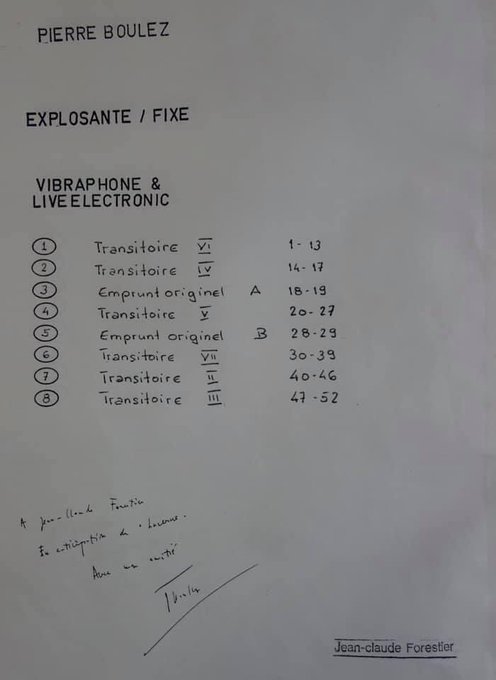 PIERRE BOULEZ
EXPLOSANTE / FIXE
VIBRAPHONE &
LIVEELECTRONIC
1 Transitoire VI 1-13
2 Transitoire IV 14-17
3 Emprunt originel A 18-19
4 Transitoire V 20-27
5 Emprunt originel B 28-29
6 Transitoire VII 30-39
7 Transitoire II 40-46
8 Transitoire III 47-52
A Jean-Claude Forestier
En anticipation de
Avec mon amitié
PBoulez
Jean-claude Forestier